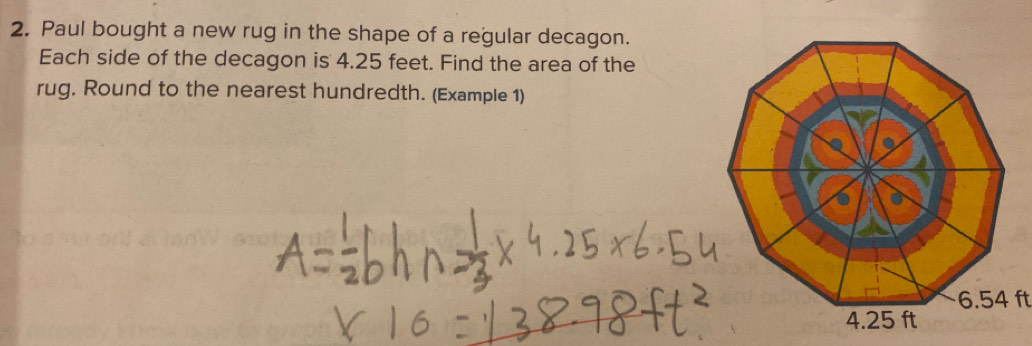 2. Paul bought a new rug in the shape of a regular decagon.
Each side of the decagon is 4.25 feet. Find the area of the
rug. Round to the nearest hundredth. (Example 1)
A=½bhn=½×4.25×6.54
×10=138.98ft²
6.54 ft
4.25 ft